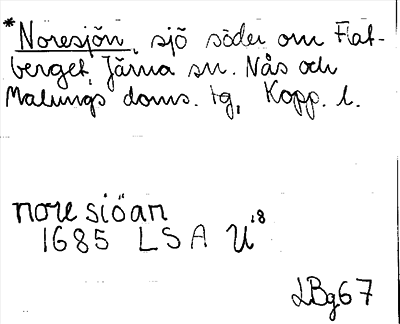 *Noresjön, sjö söder om Flat-
berget, Järna sn. Nås och
Malungs doms. tg, Kopp. l.
noresiöan
1685 LSA U18
LBg67